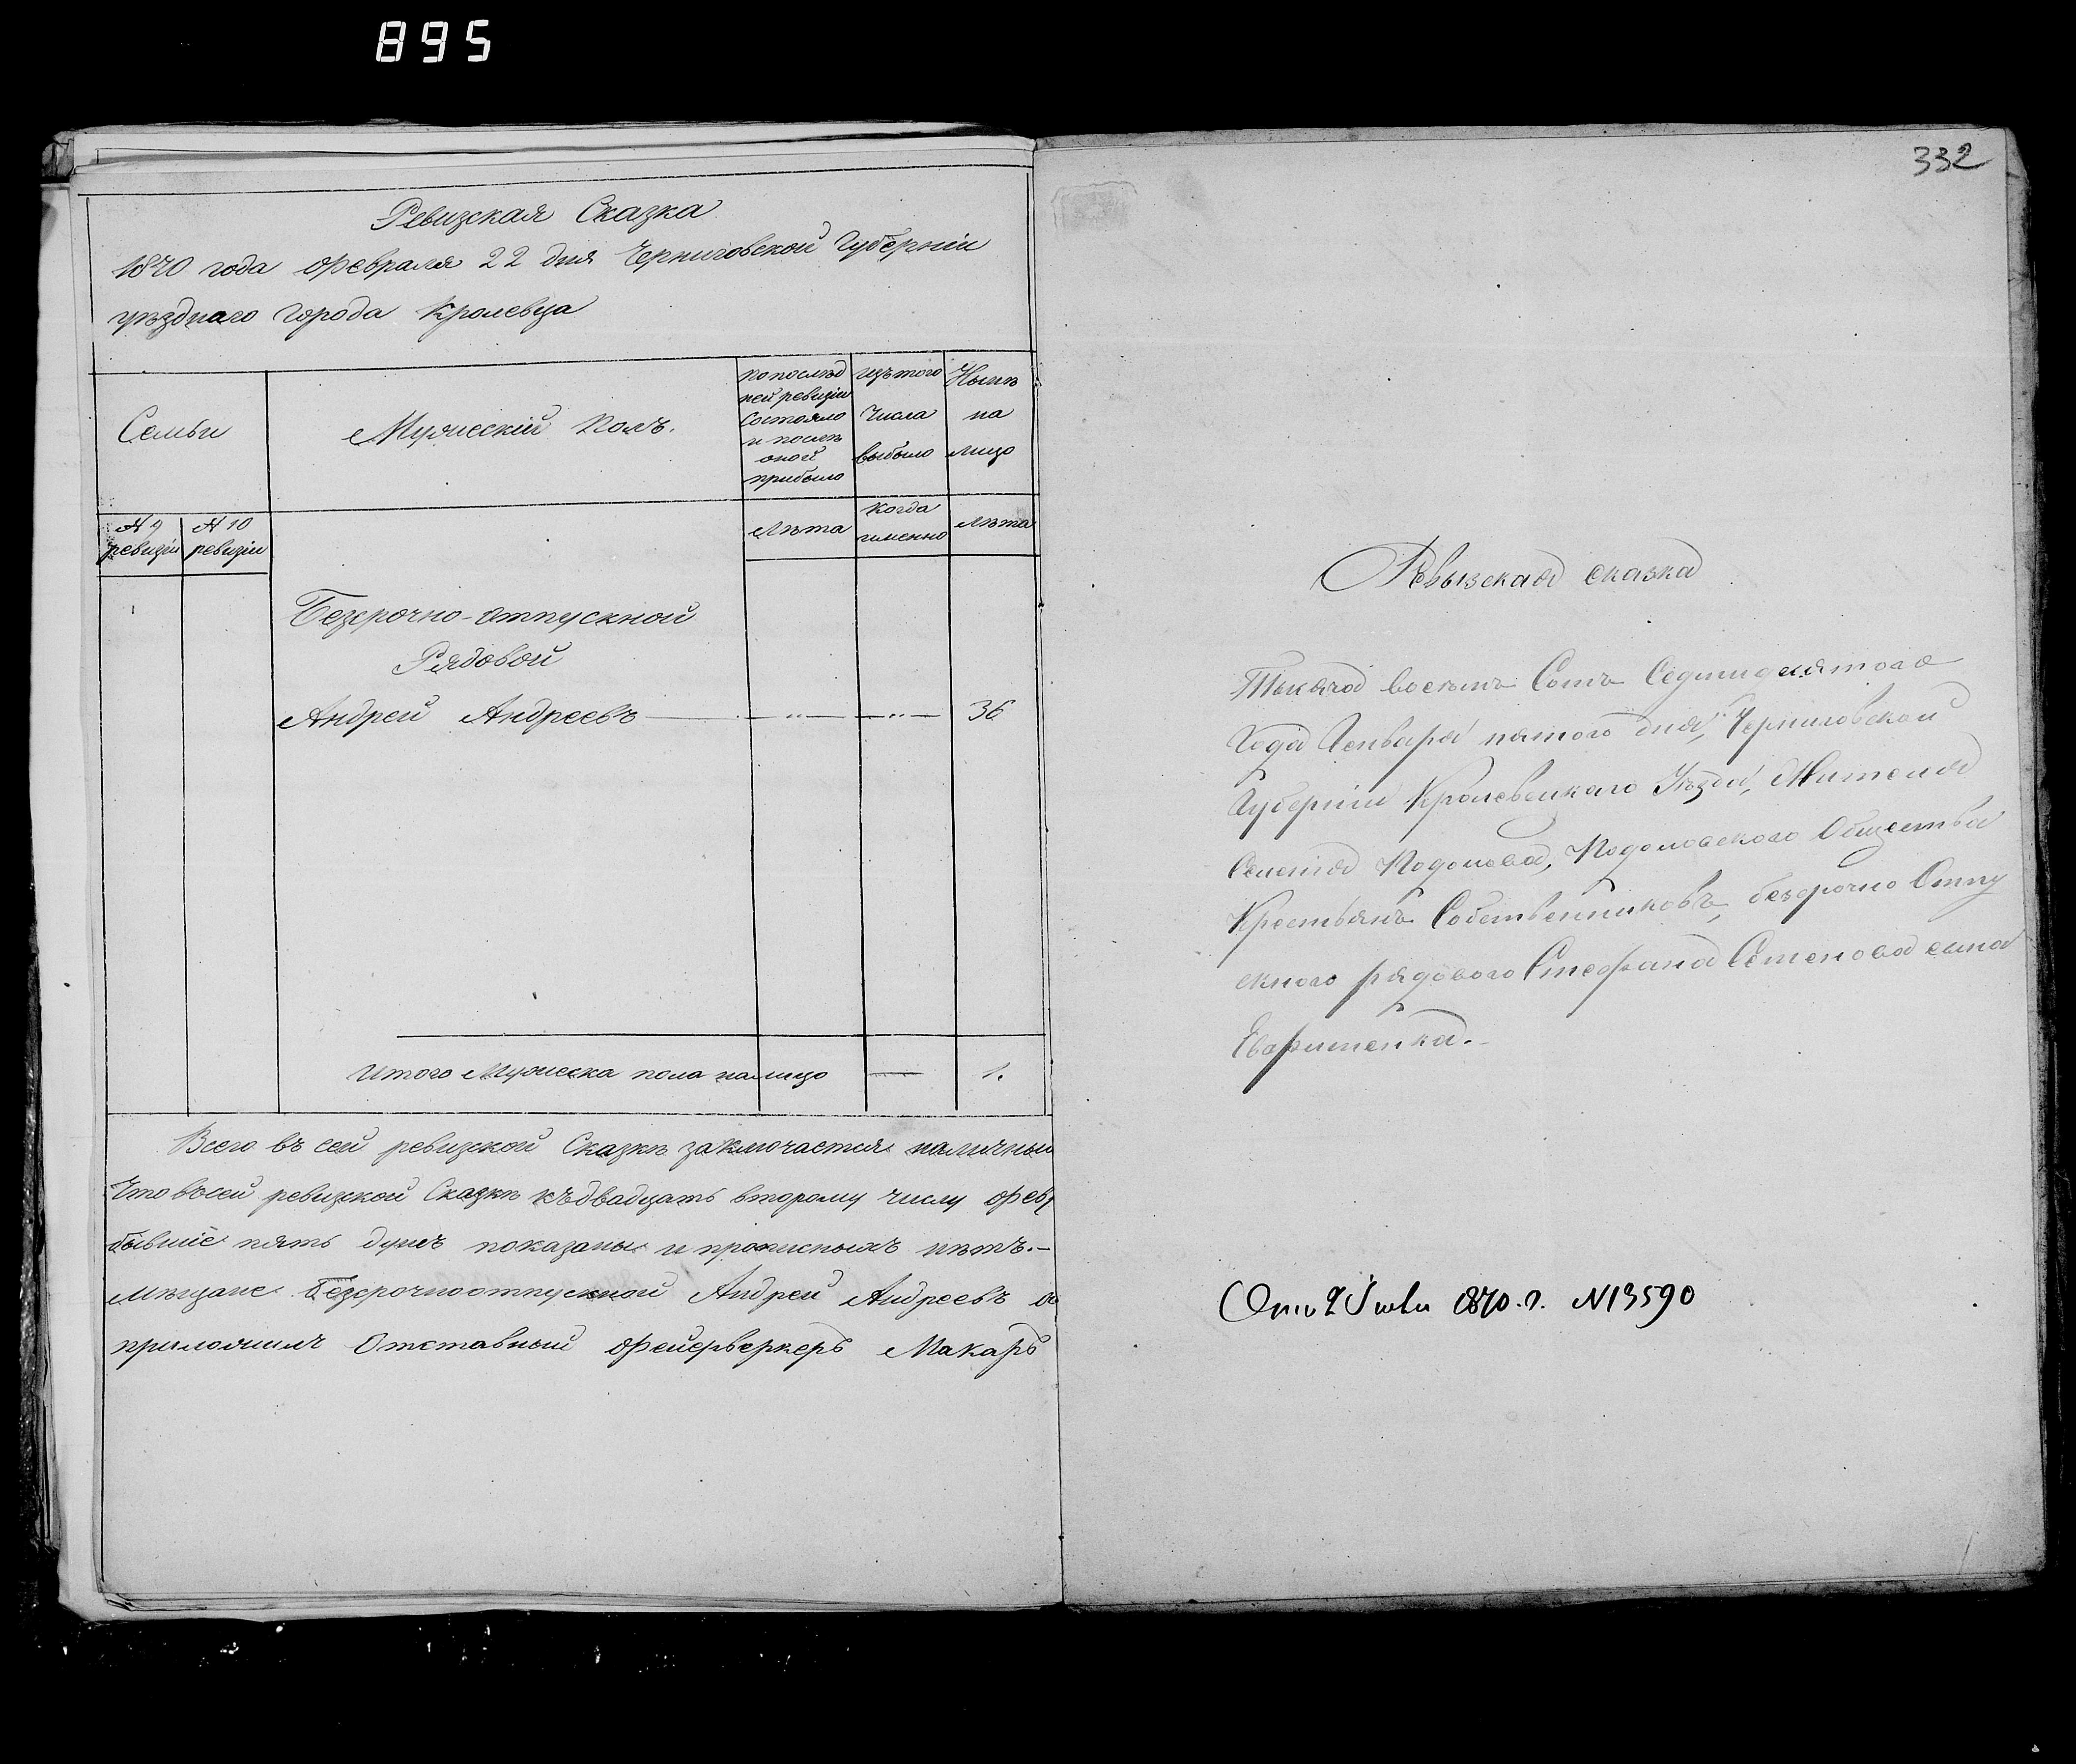 895
Ревизская Сказка
1870 года Февраля 22 дня Черниговской Губерніи
уѣзднаго города Кролевца
Семьи
Мужескій Полъ.
по послѣд
ней ревизіи
состояло
и послѣ
оной
прибыло
изъ того
числа
выбыло
Нынѣ
на
лицо
№ 9
ревизіи
№ 10
ревизіи
Лѣта
когда
именно
Лѣта
Безсрочно-отпускной
Рядовой
Андрей Андреевъ — „ — — „ — 36
Итого Мужеска пола налицо — 1.
Всего въ сей ревизской Сказкѣ заключается наличны
Что въ сей ревизской Сказкѣ къ двадцать второму числу Февр
бывшіе пять душъ показаны и прописныхъ нѣтъ.—
мѣщане Безсрочноотпускной Андрей Андреевъ
приложилъ Отставный Фейерверкеръ Макаръ
332
Ревызская сказка
Тысяча восемъ Сотъ Седмидесятого
Года Генваря пятого дня, Черниговской
Губерніи Кролевецкаго Уѣзда, Жителя
Селенія Подолова, Подоловского Общества
Крестьянъ Собственниковъ, безсрочно Отпу
скного рядового Стефана Семенова сына
1870. г. N 13590